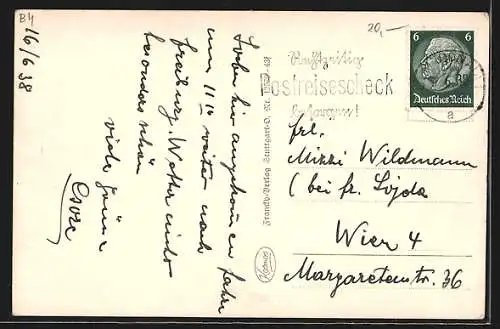 B4
16/6 38
Soeben hier angekommen fahre
um 11 15 weiter nach
Freiburg. Wetter nicht
besonders schön
viele Grüße
20,-
6 6
Deutsches Reich
a
Rechtzeitig
Postreisescheck
besorgen!
Franckh-Verlag Stuttgart-O.
Kosmos
Frl.
Mizzi Wildmann
(bei Fr. Sojda
Wien 4
Margaretenstr. 36